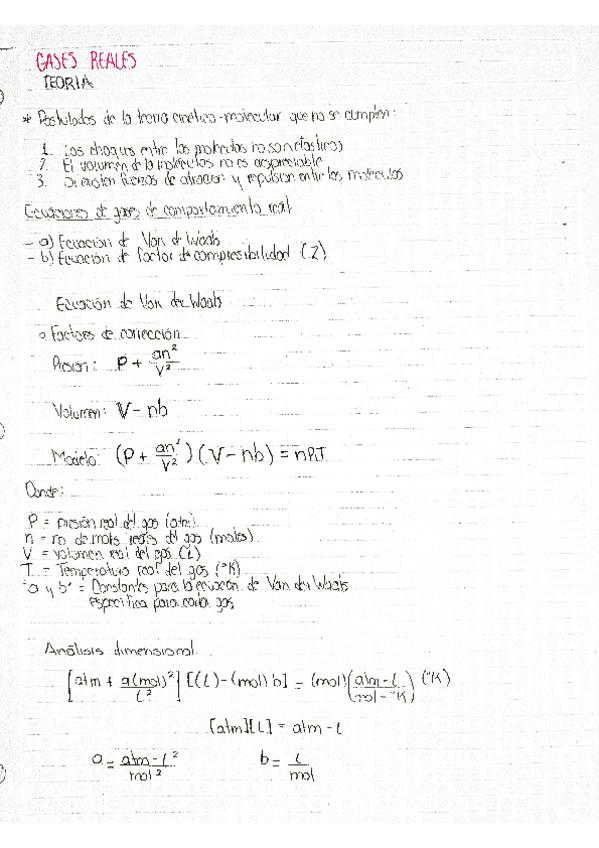 GASES REALES
TEORIA
* Postulados de la teoria cinético-molecular que no se cumplen:
1. Los choques entre las moleculas no son elasticos
2. El volumen de la moleculas no es despreciable
3. Si existen fuerzas de atraccion y repulsion entre las moleculas
Ecuaciones de gases de comportamiento real
- a) Ecuación de Van der Waals
- b) Ecuación de factor de compresibilidad (Z)
Ecuación de Van der Waals
o Factores de corrección
Presion: P + an²/V²
Volumen: V - nb
Modelo: (P + an²/V²)(V - nb) = nRT
Donde:
P = presión real del gas (atm)
n = no. de moles reales del gas (moles)
V = volumen real del gas (L)
T = Temperatura real del gas (°K)
"a y b" = Constantes para la ecuación de Van der Waals
especifica para cada gas
Análisis dimensional
[atm + a(mol)²/L²] [(L)-(mol) b] = (mol)(atm-L/mol-°K) (°K)
[atm][L] = atm - L
a = atm-L²/mol² b = L/mol